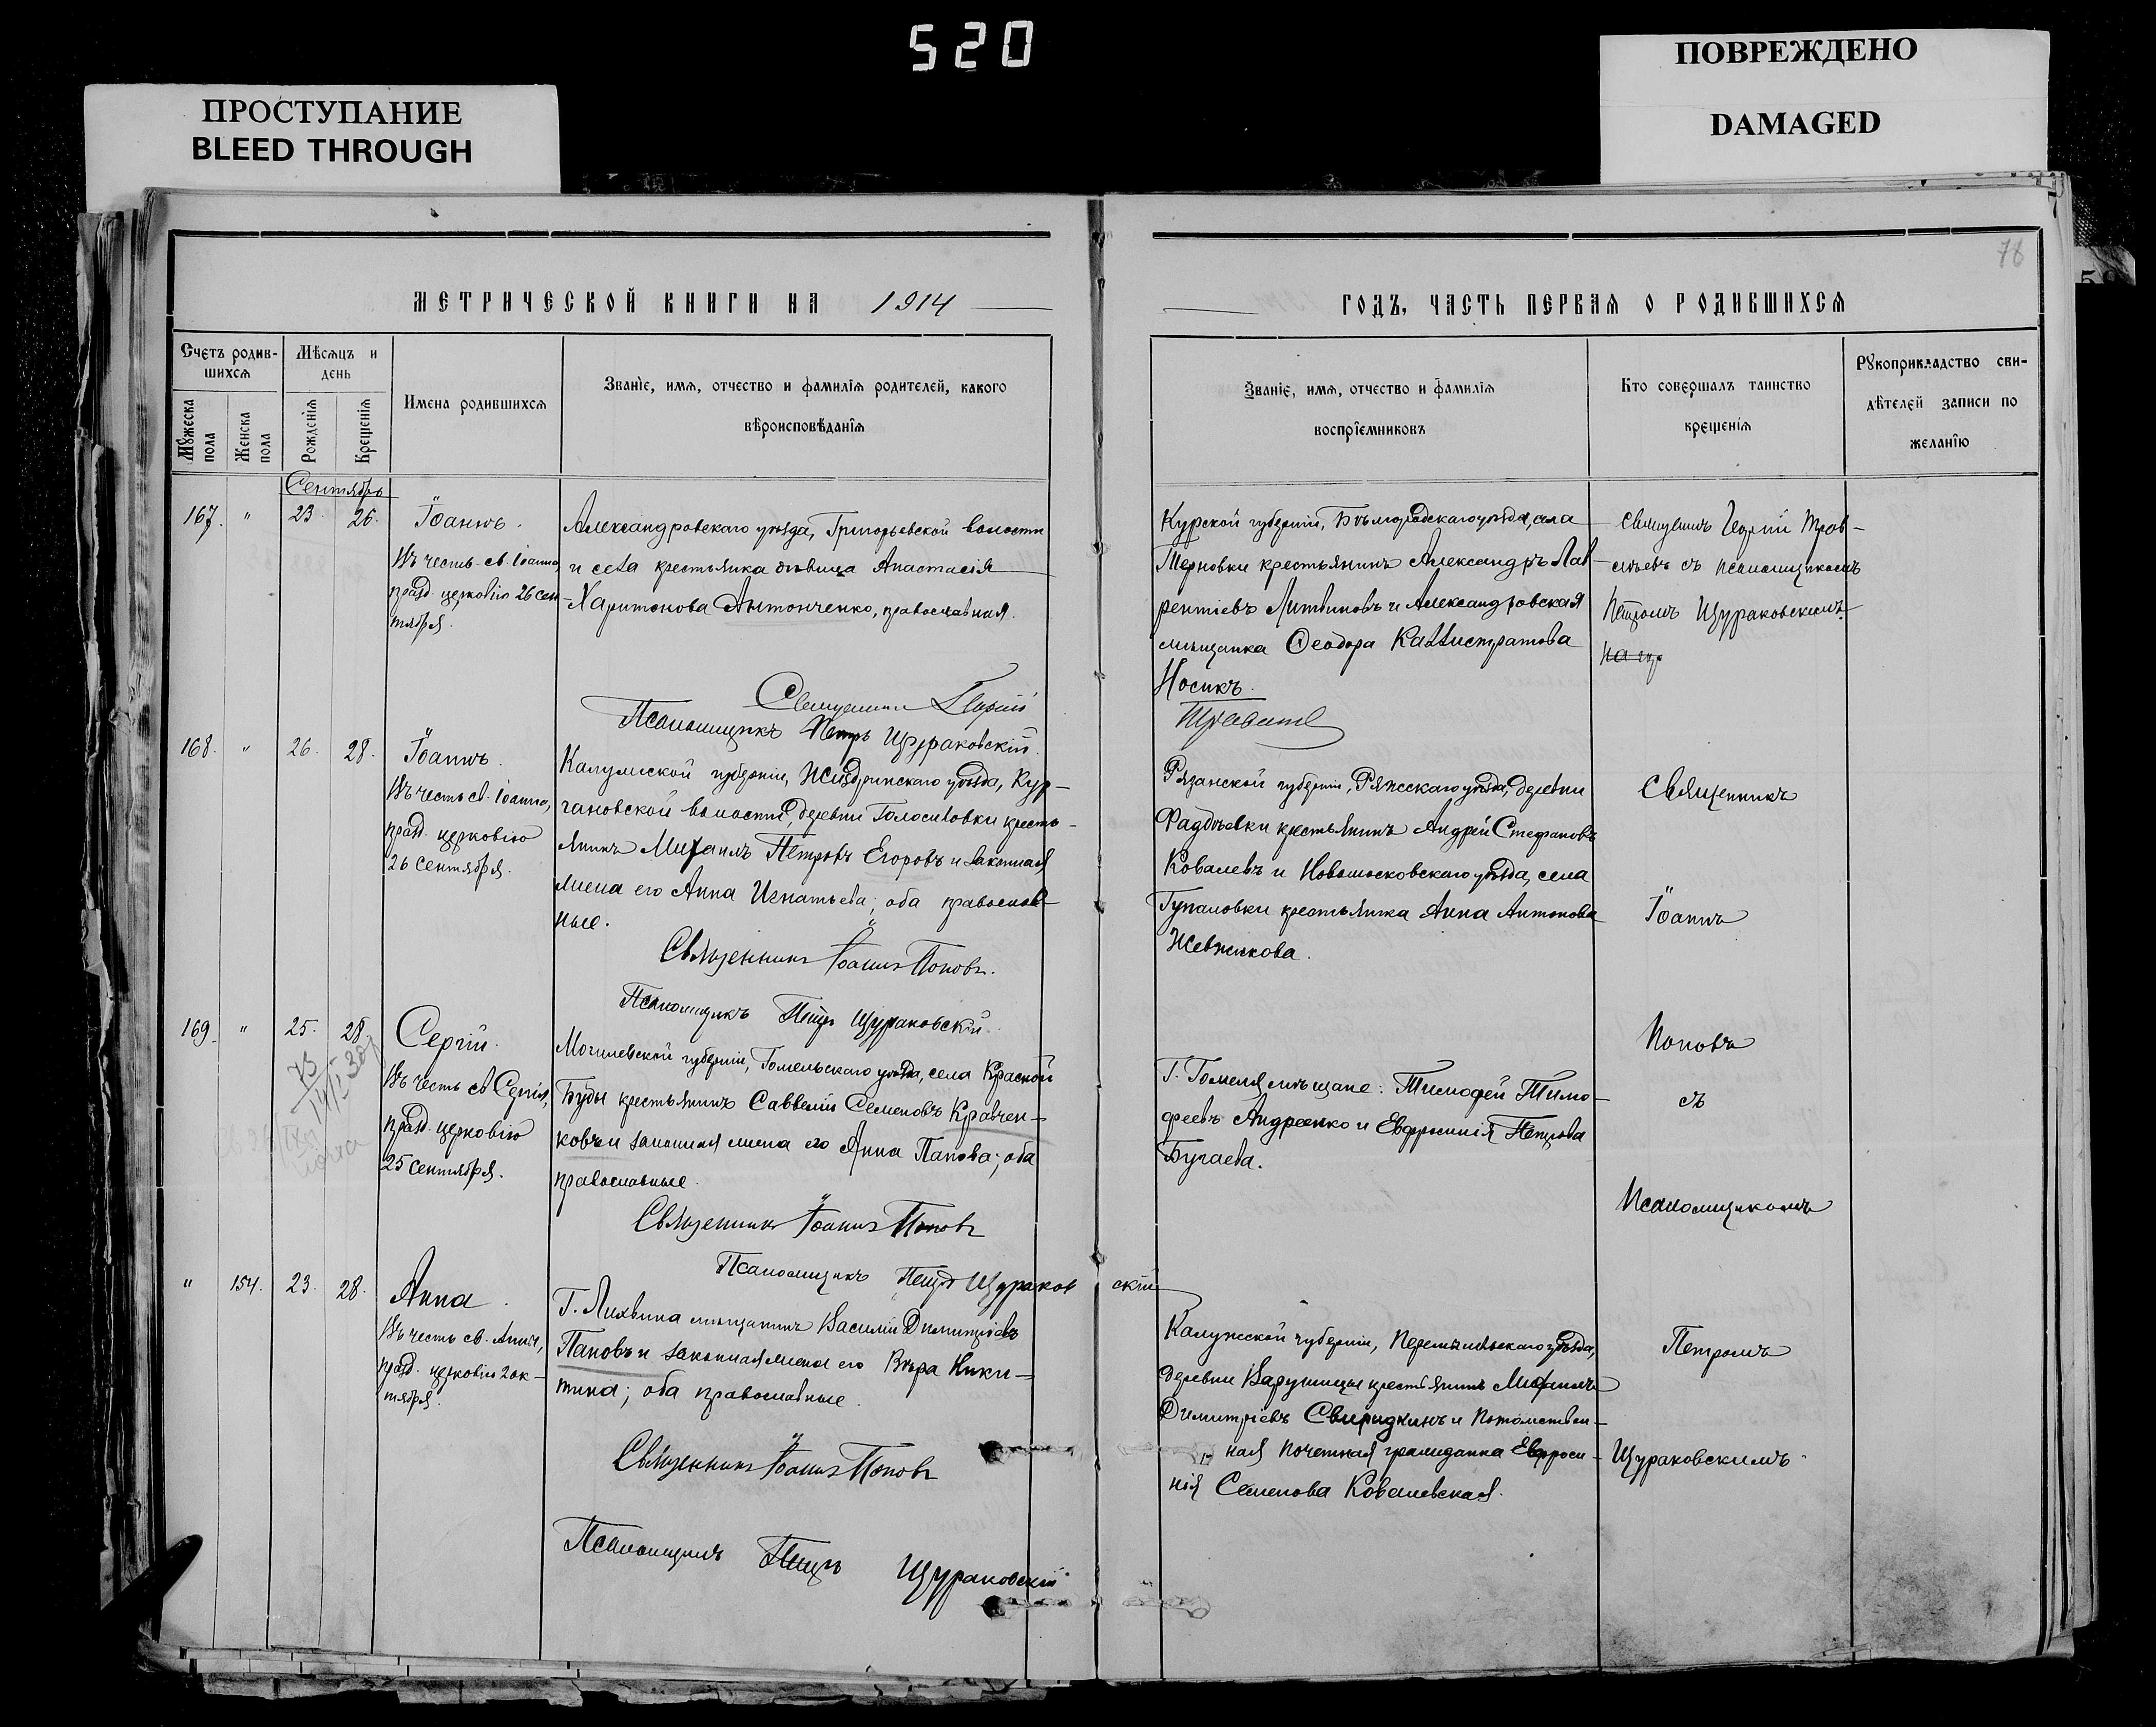 520
ПРОСТУПАНИЕ
BLEED THROUGH
ПОВРЕЖДЕНО
DAMAGED
76
МЕТРИЧЕСКОЙ КНИГИ НА 1914
ГОДЪ, ЧАСТЬ ПЕРВАЯ О РОДИВШИХСЯ
Счетъ родив-
шихся
Мужеска пола
Женска пола
Мѣсяцъ и
день
Рожденія
Крещенія
Имена родившихся
Званіе, имя, отчество и фамилія родителей, какого
вѣроисповѣданія
Званіе, имя, отчество и фамилія
воспріемниковъ
Кто совершалъ таинство
крещенія
Рукоприкладство сви-
дѣтелей записи по
желанію
Сентябрь
167. " 23. 26.
Іоаннъ.
Въ честь св. Іоанна,
празд. церковію 26 сен-
тября.
Александровскаго уѣзда, Григорьевской волости
и села крестьянка дѣвица Анастасія
Харитонова Антонченко, православная.
Священникъ Георгій
Псаломщикъ Петръ Щураковскій.
Курской губерніи, Бѣлгородскаго уѣзда, села
Терновки крестьянинъ Александръ Лав-
рентіевъ Литвиновъ и Александровская
мѣщанка Ѳеодора Каллистратова
Носикъ.
Священникъ Георгій
съ псаломщикомъ
Петромъ Щураковскимъ.
168. " 26. 28.
Іоаннъ.
Въ честь св. Іоанна,
празд. церковію
26 сентября.
Калужской губерніи, Жиздринскаго уѣзда, Кур-
гановской волости, деревни Голосиловки кресть-
янинъ Михаилъ Петровъ Егоровъ и законная
жена его Анна Игнатьева; оба православ-
ные.
Священникъ Іоаннъ Поповъ.
Псаломщикъ Петръ Щураковскій.
Рязанской губерніи, Ряжскаго уѣзда, деревни
Фадѣевки крестьянинъ Андрей Стефановъ
Ковалевъ и Новомосковскаго уѣзда, села
Гупаловки крестьянка Анна Антонова
Жевжикова.
Священникъ
Іоаннъ
Поповъ
съ
Псаломщикомъ
Петромъ
Щураковскимъ.
169. " 25. 28.
Сергій.
Въ честь св. Сергія,
празд. церковію
25 сентября.
Могилевской губерніи, Гомельскаго уѣзда, села Красной
Буды крестьянинъ Саввелій Семеновъ Кравчен-
ковъ и законная жена его Анна Панова; оба
православные.
Священникъ Іоаннъ Поповъ
Псаломщикъ Петръ Щураковскій
Г. Гомеля мѣщане: Тимофей Тимо-
феевъ Андреенко и Евфросинія Петрова
Бугаева.
" 154. 23. 28.
Анна.
Въ честь св. Анны,
празд. церковію 2 ок-
тября.
Г. Лихвина мѣщанинъ Василій Димитріевъ
Пановъ и законная жена его Вѣра Ники-
тина; оба православные.
Священникъ Іоаннъ Поповъ
Псаломщикъ Петръ Щураковскій
Калужской губерніи, Перемышльскаго уѣзда,
деревни Варушицы крестьянинъ Михаилъ
Димитріевъ Свиридкинъ и Потомствен-
ная почетная гражданка Евфроси-
нія Семенова Ковалевская.